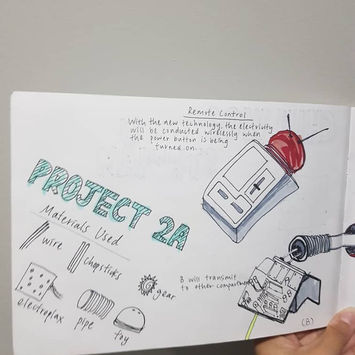 Remote Control
With the new technology, the electricity
will be conducted wirelessly when
the power button is being
turned on.
PROJECT 2A
Materials Used
wire
chopsticks
gear
electroplax
pipe
toy
B will transmit
to other compartment
(B)